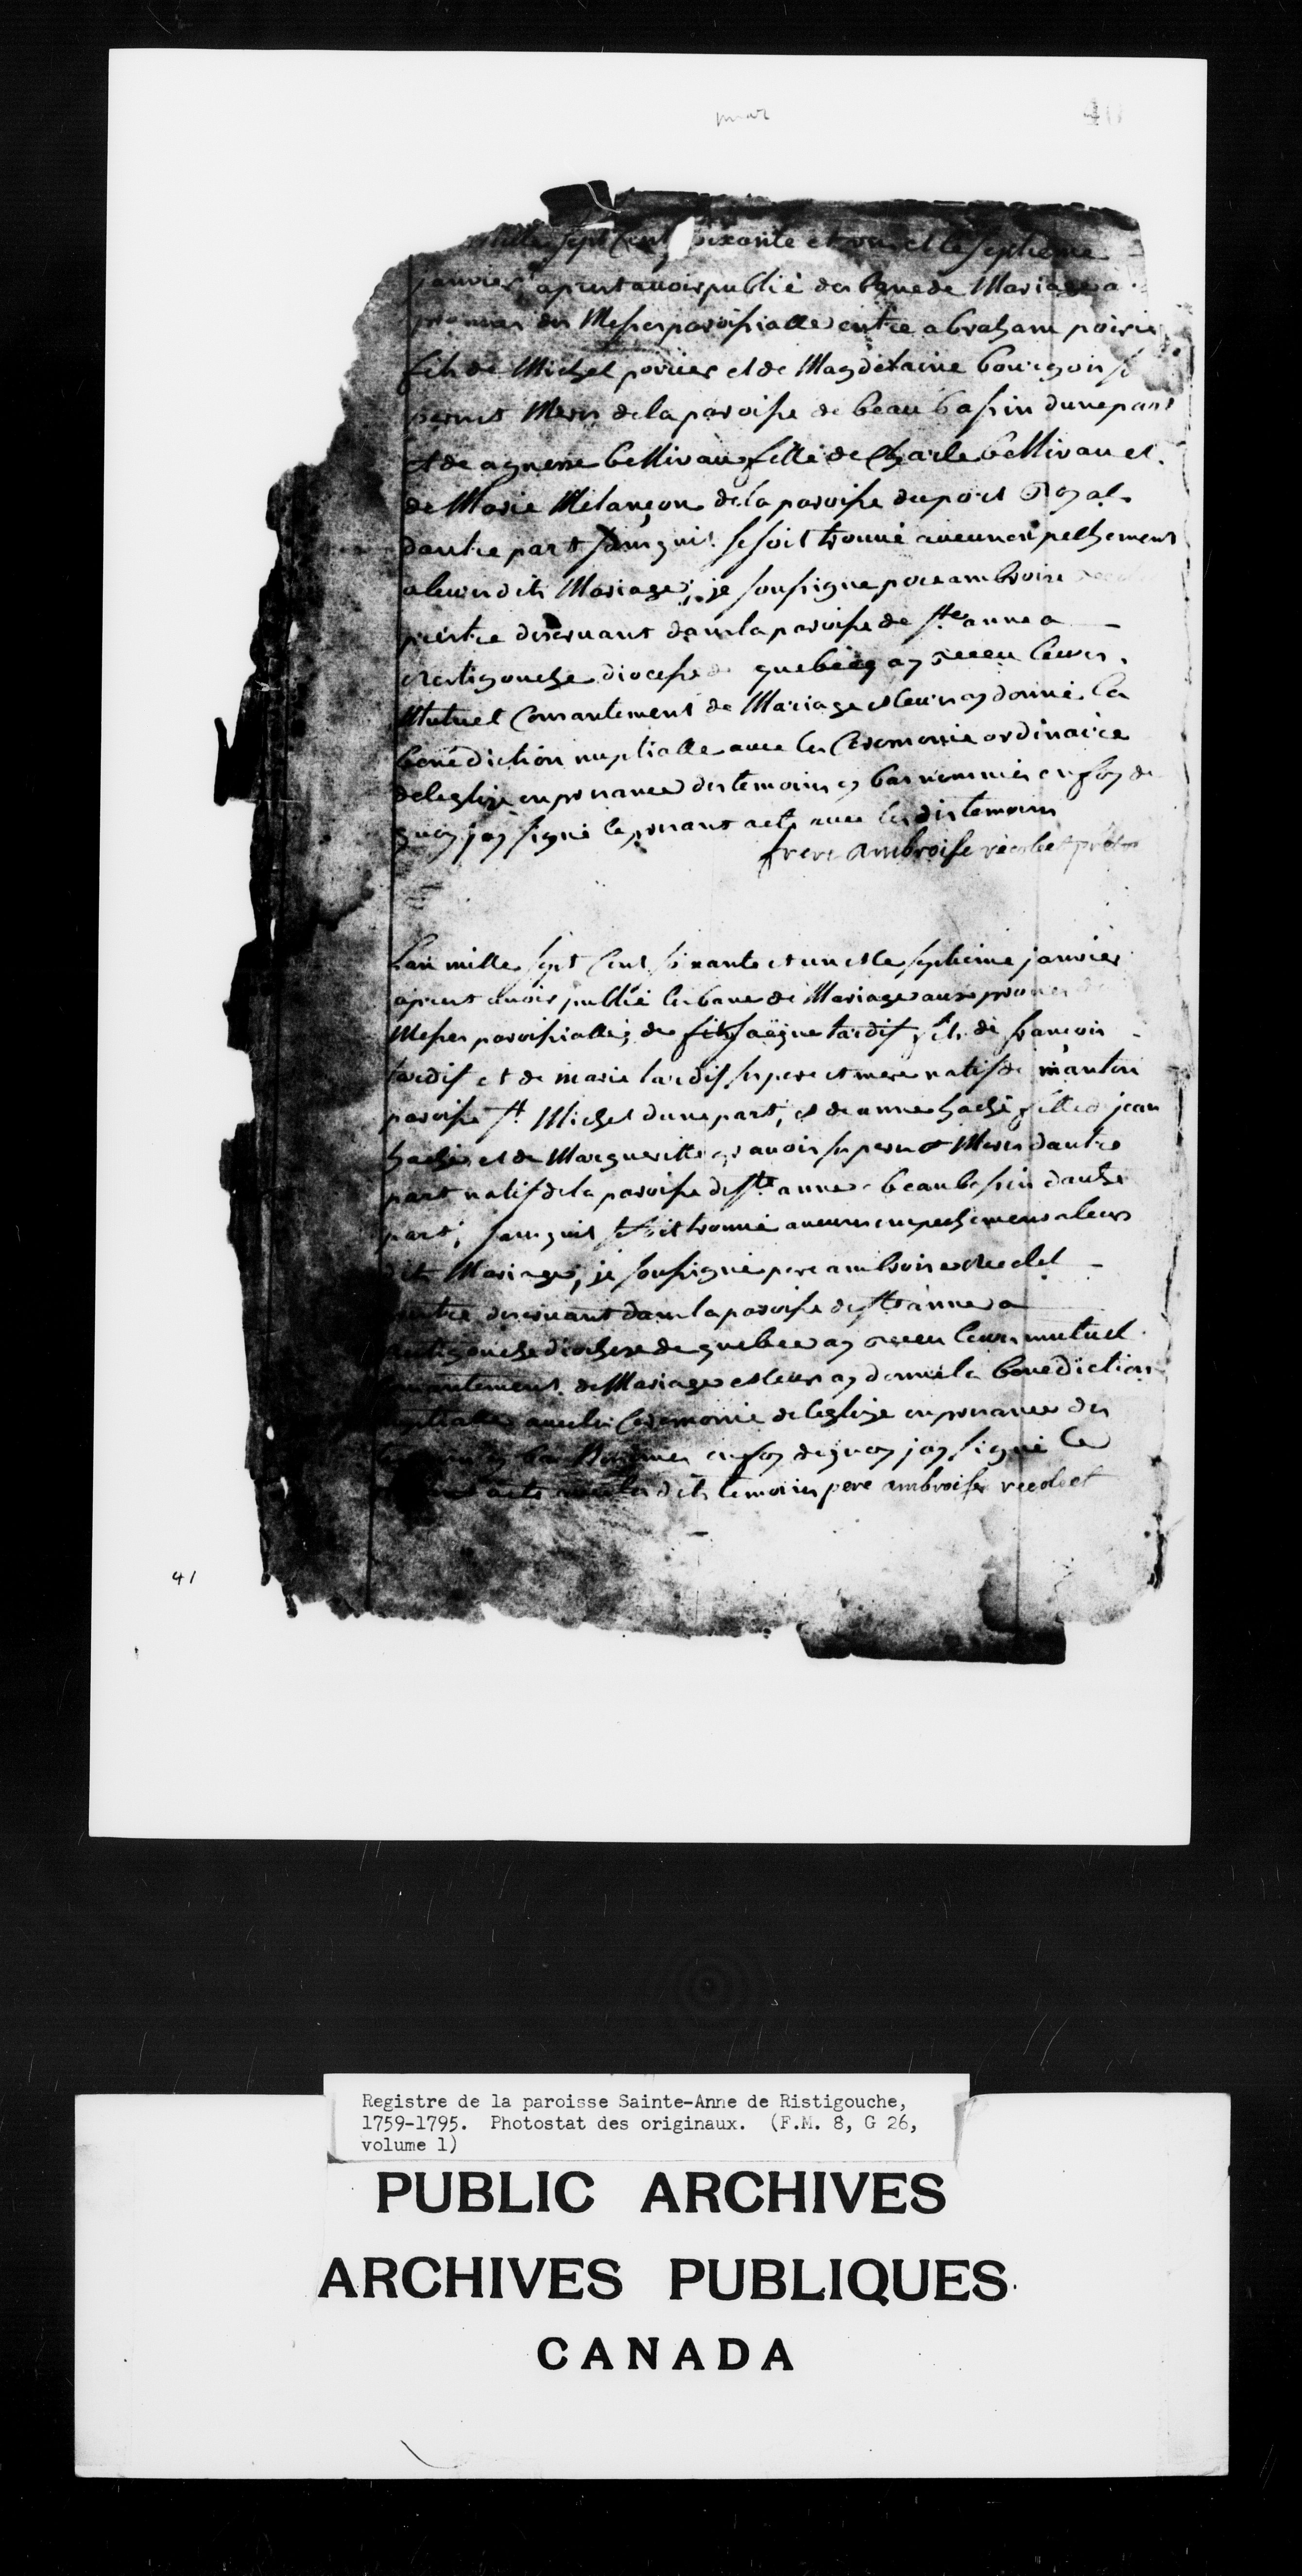 mar
40
mille sept Cent soixante et un et le septieme
janvier aprest avoir publié des bane de Mariage a
prones des Messes paroissialle entre abraham poirier
fils de Michel poirier et de Magdelaine bourgois
perest Meres de la paroisse de beau bassin dune part
et de agnesse bellivau fille de Charle bellivau et
de Marie Melançon de la paroisse du port Royal
dautre part sanquil se soit trouvé aucun enpechement
a leur dit Mariage, je soussigne pere ambroise
prestre deservant dans la paroisse de Ste anne a
Restigouche diocesse de quebecq ay receu leurs
Mutuel Consantement de Mariage et leurs ay donné la
benediction nuptialle avec les Ceremonie ordinaire
de leglise en presance des temoins cy bas nommés en foy de
quoy jay signé le present acte avec les dis temoins
frere Ambroise récolet prêtre
Lan mille sept Cent soixante et un et le septieme janvier
aprest avoir publié les bane de Mariage aux prones
Messes paroissialle; de tardif fils de françois
tardif et de marie tardif ses pere et mere natif de
paroisse St Michel dune part, et de anne haché fille d jean
haché et de Margueritte gravoir ses peres et Meres dautre
part natif de la paroisse de Ste anne beaubassin dautre
part, sanquil se soit trouvé aucun enpechement a leurs
dit Mariage, je soussigné pere ambroise Recolet
prestre deservant dans la paroisse de Ste anne a
Restigouche diochese de quebec ay receu leurs mutuel
Consantement de Mariage et leurs ay donné la benediction
nuptialle avec les Ceremonie de leglise en presance des
temoins cy bas Nommes en foy de quoy jay signé le
present acte avec les dit temoins pere ambroise recolet
41
Registre de la paroisse Sainte-Anne de Ristigouche,
1759-1795. Photostat des originaux. (F.M. 8, G 26,
volume 1)
PUBLIC ARCHIVES
ARCHIVES PUBLIQUES
CANADA